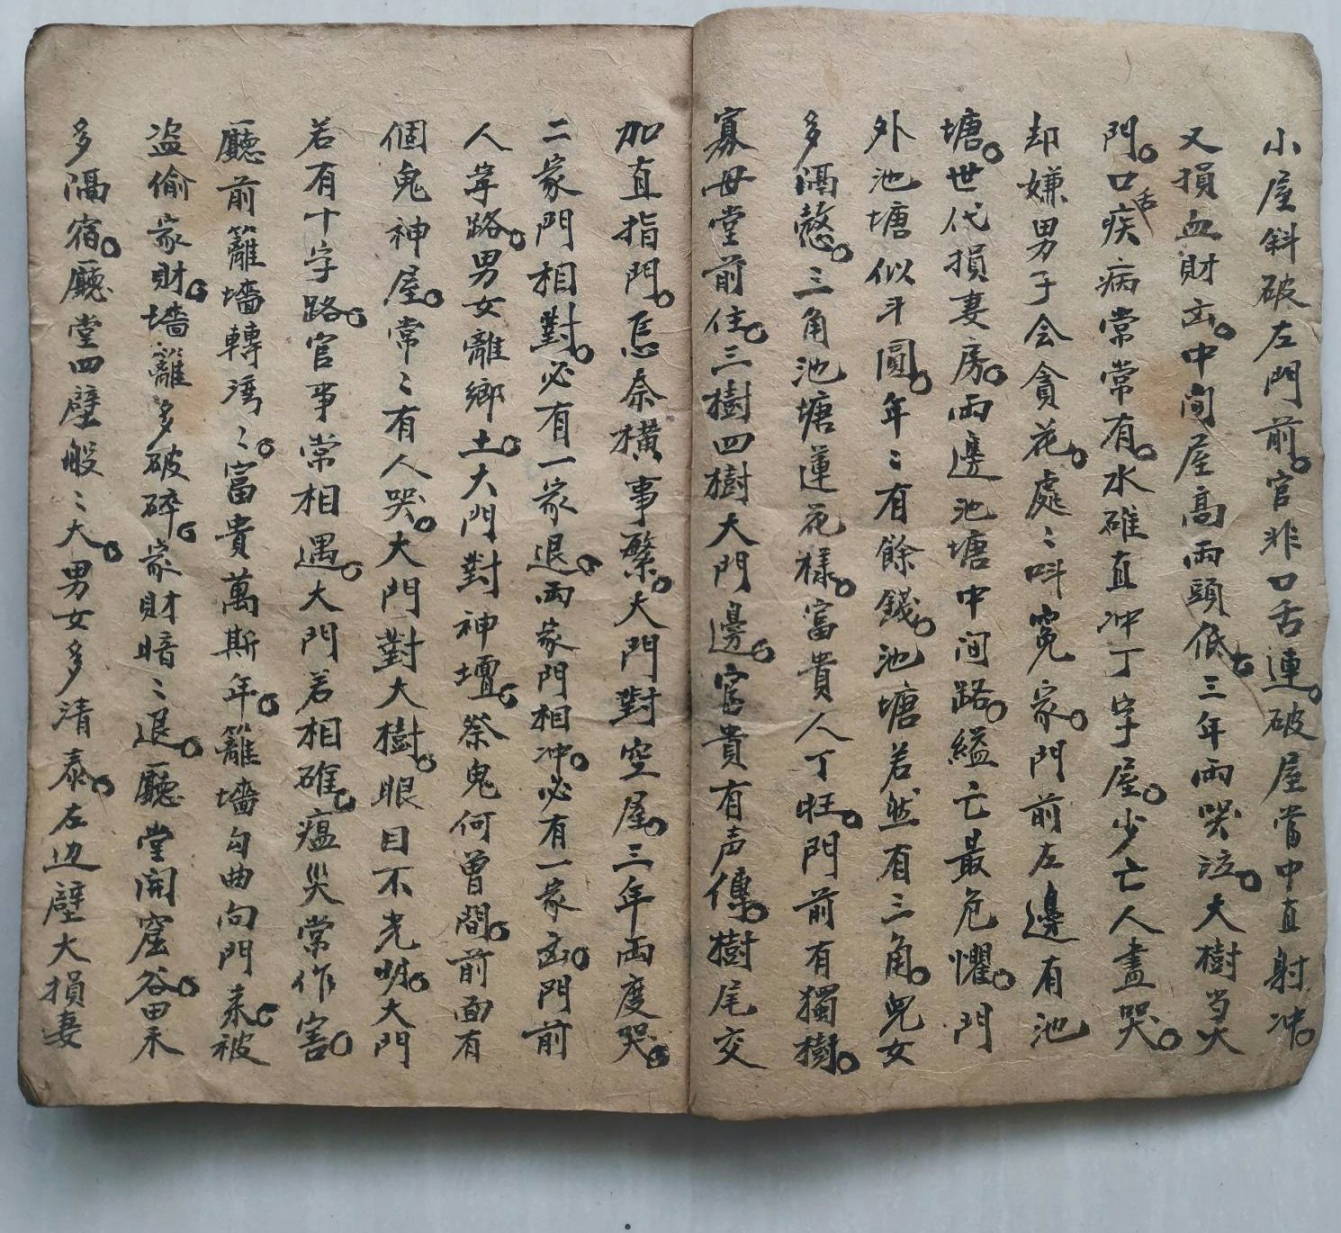 小屋斜破左門前。官非口舌連。破屋當中直射冲。
又損血財凶。中间屋高兩頭低。三年兩哭泣。大樹当大
門。口舌疾病常常有。水碓直冲丁字屋。少亡人盡哭。
却嫌男子会貪花。處〻叫冤家。門前左邊有池
塘。世代損妻房。兩邊池塘中间路。縊亡最危懼。門
外池塘似斗圓。年〻有餘錢。池塘若然有三角。兒女
多隔憨。三角池塘蓮花樣。富貴人丁旺。門前有獨樹。
寡母堂前住。三樹四樹大門邊。富貴有声傳。樹尾交
加直指門。忌奈橫事繫。大門對空屋。三年兩度哭。
二家門相對。必有一家退。兩家門相冲。必有一家凶。門前
人字路。男女離鄉土。大門對神壇。祭鬼何曾閒。前面有
個鬼神屋。常〻有人哭。大門對大樹。眼目不光明。大門
若有十字路。官事常相遇。大門若相碓。瘟災常作害。
廳前籬墻轉湾〻。富貴萬斯年。籬墻勾曲向門来。被
盗偷家財。墻籬多破碎。家財暗〻退。廳堂開窟谷田禾
多隔宿。廳堂四壁般〻大。男女多清泰。左边壁大損妻